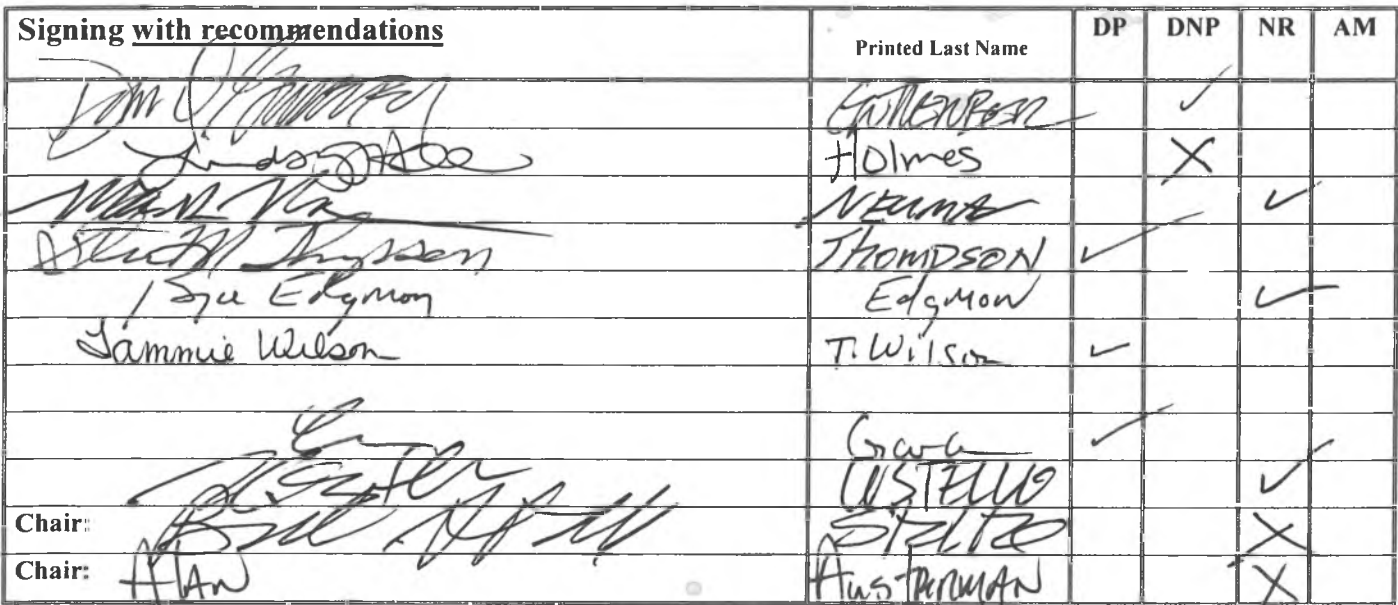 Signing with recommendations Printed Last Name DP DNP NR AM
GUTTENBERG ✓
Lindsey Holmes X
NEUMAN ✓
Steve M Thompson THOMPSON ✓
Bryce Edgmon Edgmon ✓
Tammie Wilson T. Wilson ✓
Gara ✓
COSTELLO ✓
Chair: Bill STOLTZE X
Chair: Alan AUSTERMAN X